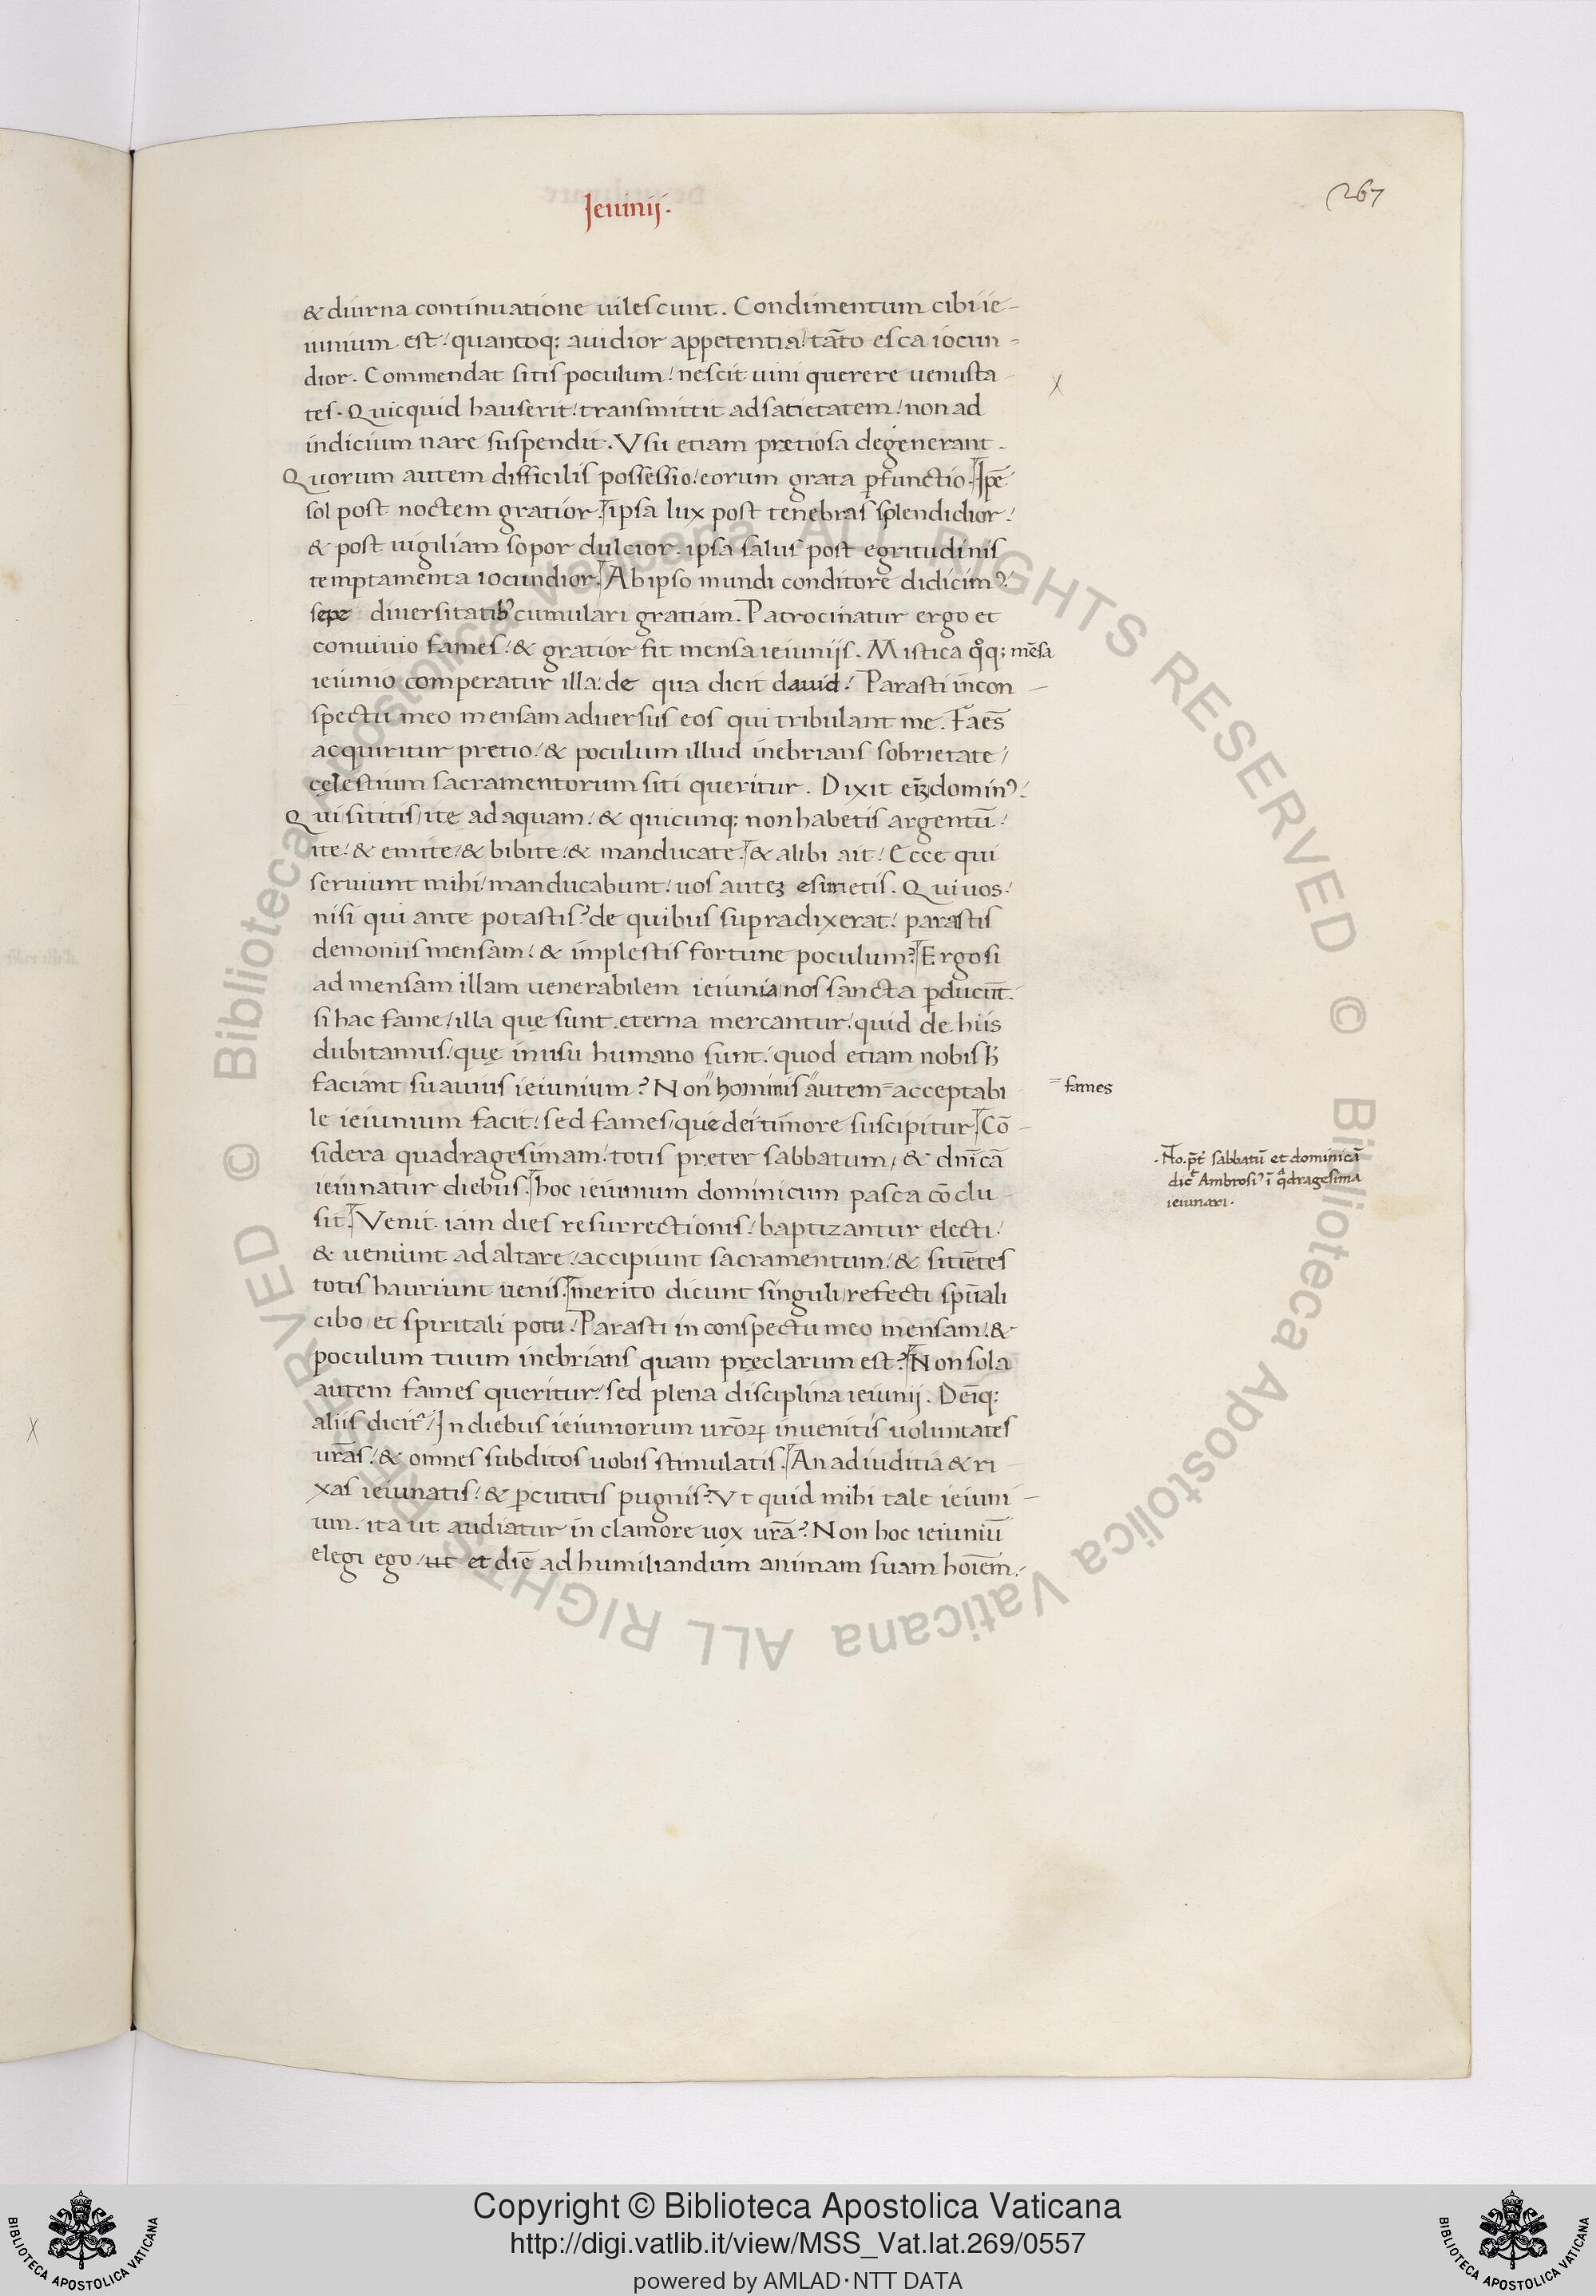 Ieiunij.
267
& diurna continuatione uilescunt. Condimentum cibi ie-
iunium est: quantoq; auidior appetentia: tāto esca iocun-
dior. Commendat sitis poculum: nescit uini querere uenusta-
tes. Quicquid hauserit: transmittit ad satietatem: non ad
indicium nare suspendit. Vsu etiam pretiosa degenerant.
Quorum autem difficilis possessio: eorum grata ꝑfunctio. Ip̄e
sol post noctem gratior. ipsa lux post tenebras splendidior:
& post uigiliam sopor dulcior. ipsa salus post egritudinis
temptamenta iocundior. Ab ipso mundi conditore didicimꝰ:
sepe diuersitatibꝰ cumulari gratiam. Patrocinatur ergo et
conuiuio fames: & gratior fit mensa ieiunijs. Mistica qͦq; mēsa
ieiunio comperatur illa: de qua dicit dauid: Parasti in con-
spectu meo mensam aduersus eos qui tribulant me. Famēs
acquiritur pretio: & poculum illud inebrians sobrietate/
cęlestium sacramentorum siti queritur. Dixit eīꝫ dominꝰ:
Qui sititis/ ite ad aquam: & quicunq; non habetis argentū:
ite: & emite: & bibite: & manducate. & alibi ait: Ecce qui
seruiunt mihi: manducabunt: uos auteꝫ esurietis. Qui uos:
nisi qui ante potastis? de quibus supra dixerat: parastis
demoniis mensam: & implestis fortune poculum? Ergo si
ad mensam illam uenerabilem ieiunia nos sancta ꝑducūt:
si hac fame/ illa quę sunt eterna mercantur: quid de hiis
dubitamus: quę in usu humano sunt: quod etiam nobis h̄
faciant suauius ieiunium? Non" hominis "autem = acceptabi
le ieiunium facit: sed fames/ que dei timore suscipitur. Cō-
sidera quadragesimam: totis pręter sabbatum/ & dn̄icā
ieiunatur diebus. hoc ieiunium dominicum pasca cōclu-
sit. Venit iam dies resurrectionis: baptizantur electi:
& ueniunt ad altare: accipiunt sacramentum: & sitiētes
totis hauriunt uenis. merito dicunt singuli/ refecti spūali
cibo/ et spiritali potu: Parasti in conspectu meo mensam: &
poculum tuum inebrians quam pręclarum est? Non sola
autem fames queritur: sed plena disciplina ieiunij. Deīq;
aliis dicit᷑: In diebus ieiuniorum urōꝝ inuenitis uoluntates
urās: & omnes subditos uobis stimulatis. An ad iuditia & ri-
xas ieiunatis: & ꝑcutitis pugnis? Vt quid mihi tale ieiuni-
um. ita ut audiatur in clamore uox urā? Non hoc ieiuniū
elegi ego: ut et diē ad humiliandum animam suam hoīem:
= fames
.No. p̄t sabbatū et dominicā
dic̄ Ambrosiꝰ ī qͣdragesima
ieiunari.
© Biblioteca Apostolica Vaticana ALL RIGHTS RESERVED © Biblioteca Apostolica Vaticana ALL RIGHTS RESERVED
Copyright © Biblioteca Apostolica Vaticana
http://digi.vatlib.it/view/MSS_Vat.lat.269/0557
powered by AMLAD·NTT DATA
BIBLIOTECA APOSTOLICA VATICANA
BIBLIOTECA APOSTOLICA VATICANA